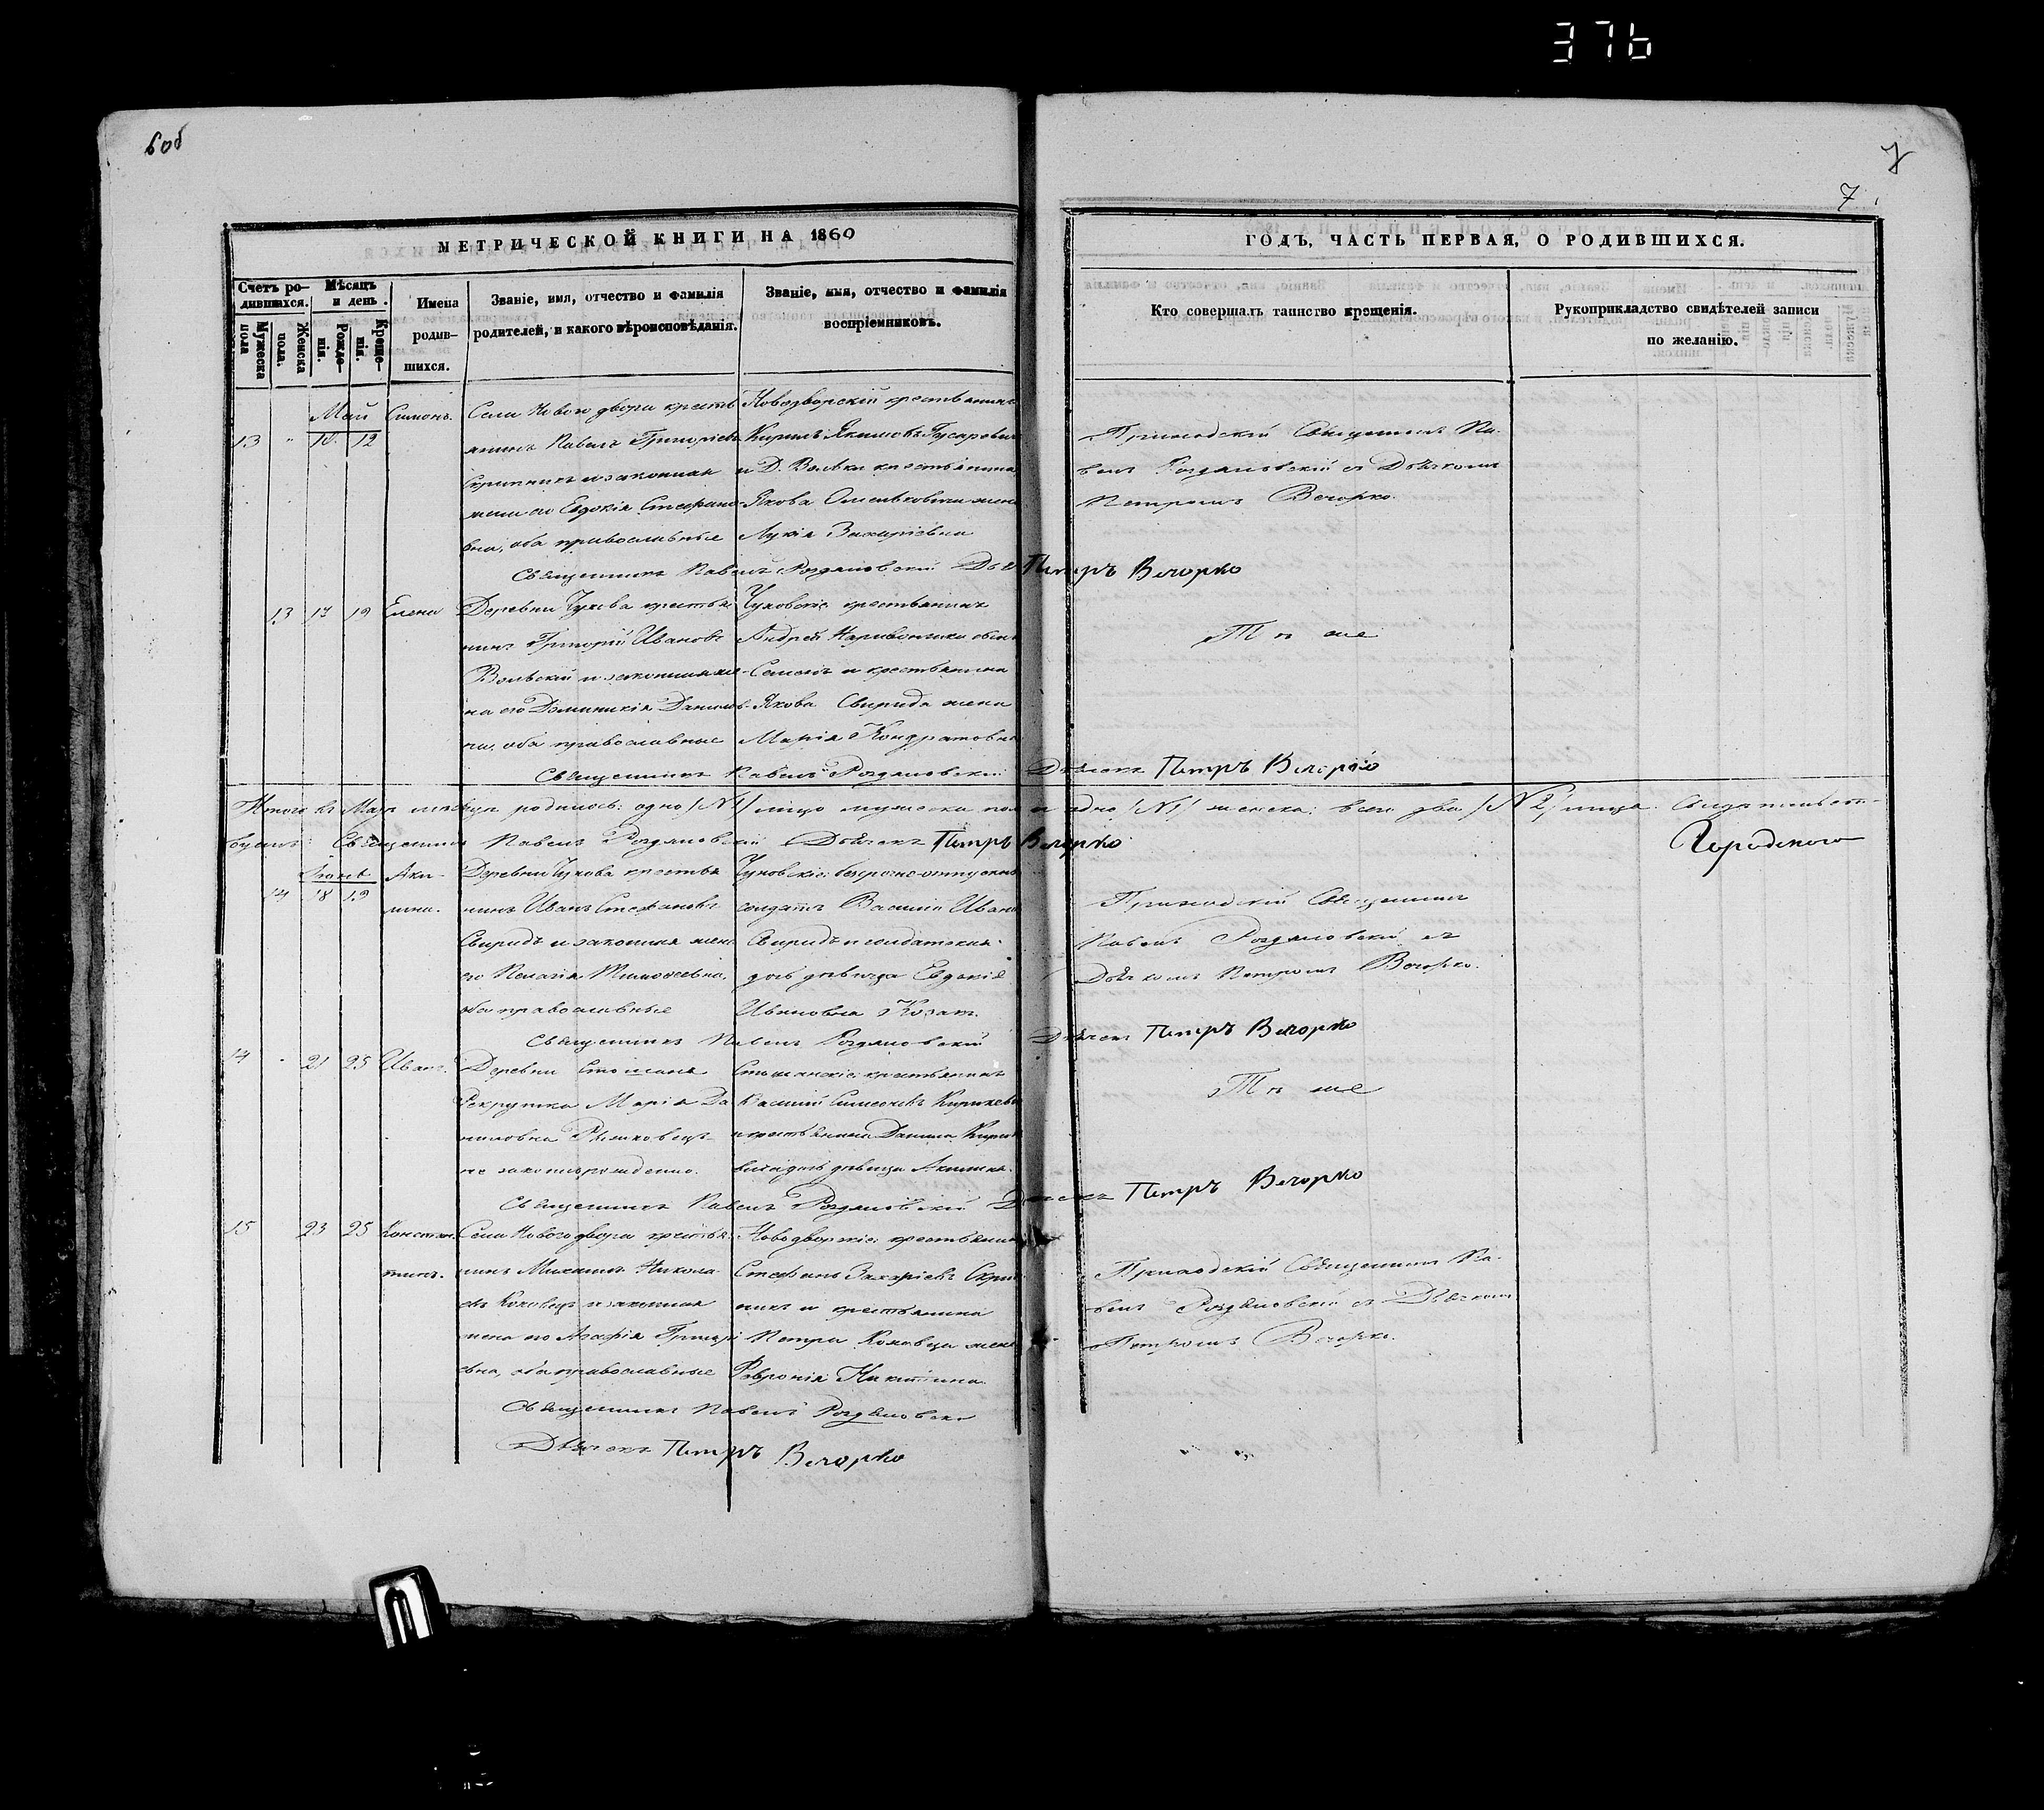 376
6об
7
7.
МЕТРИЧЕСКОЙ КНИГИ НА 1860
ГОДЪ, ЧАСТЬ ПЕРВАЯ, О РОДИВШИХСЯ.
Счетъ родившихся.
Мужеска пола
Женска пола.
Мѣсяцъ и день.
Рожденія.
Крещенія.
Имена родившихся.
Званіе, имя, отчество и фамилія родителей, и какого вѣроисповѣданія.
Званіе, имя, отчество и фамилія воспріемниковъ.
Кто совершалъ таинство крещенія.
Рукоприкладство свидѣтелей записи по желанію.
Май
13 " 10. 12
Симонъ.
Села Нового двора кресть
янинъ Павелъ Григоріевъ
Скрипникъ и законная
жена его Евдокія Стефано
вна, оба православные
Новодворскій крестьянинъ
Кирилъ Якимовъ
и Д. Вольки крестьянина
Якова Омельковича жена
Лукія Захаріевна
Приходскій Священникъ Па-
велъ Роздяловскій съ Дьячкомъ
Петромъ Вечорко.
Священникъ Павелъ Роздяловскій Дья Петръ Вечорко
13 17 19 Елена
Деревни Чухова крестья
нинъ Григорій Ивановъ
Вольскій и законная же-
на его Доминикія Данилов-
на, оба православные
Чуховскіе: крестьянинъ
Андрей
Семенъ и крестьянина
Якова Свирида жена
Марія Кондратовна
Тѣ же
Священникъ Павелъ Роздяловскій Дьячекъ Петръ Вечорко
Итого въ Маѣ мѣсяцѣ родилось: одно /№1/ лицо мужеска пола и одно /№1/ женска: всего два /№2/ лица. Свидѣтельст-
вуемъ: Священникъ Павелъ Роздяловскій Дьячекъ Петръ Вечорко
Іюнь
14 18 19
Аки-
лина.
Деревни Чухова крестья
нинъ Иванъ Стефановъ
Свиридъ и законная жена
его Пелагія Тимофеевна,
оба православные
Чуховскіе: безсрочно-отпускный
солдатъ Василій Иванъ
Свиридъ и солдатская
дочь дѣвица Евдокія
Ивановна Козак.
Приходскій Священникъ
Павелъ Роздяловскій съ
Дьячкомъ Петромъ Вечорко.
Священникъ Павелъ Роздяловскій Дьячекъ Петръ Вечорко
14 " 21 25 Иванъ.
Деревни Стошанъ
Рекрутка Марія Да
ниловна
не законнорожденно.
Стошанскіе: крестьянинъ
Василій Симеоновъ
и крестьянина Данила
дочь дѣвица Акилина.
Тѣ же
Священникъ Павелъ Роздяловскій Дьячекъ Петръ Вечорко
15 23 25
Констан-
тинъ.
Села Нового двора крестья
нинъ Михаилъ Никола
евъ Коховецъ и законная
жена его Агафія Григорі
евна, оба православные
Новодворскіе: крестьянинъ
Стефанъ Захаріевъ Скрип
никъ и крестьянина
Петра Коховца жена
Февронія Никитина.
Приходскій Священникъ Па-
велъ Роздяловскій съ Дьячкомъ
Петромъ Вечорко.
Священникъ Павелъ Роздяловскій
Дьячекъ Петръ Вечорко